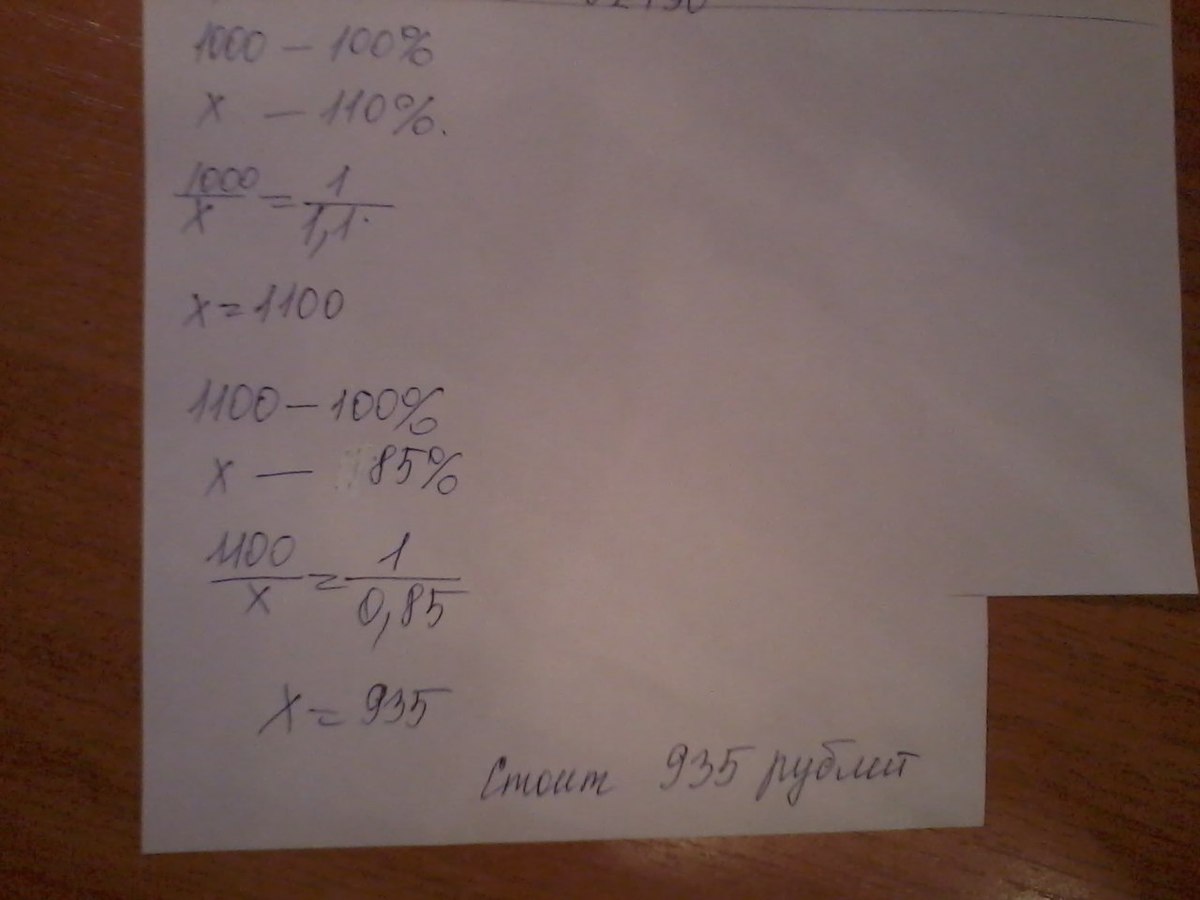 1000 — 100%
x — 110%.
1000/x = 1/1,1
x = 1100
1100 — 100%
x — 85%
1100/x = 1/0,85
x = 935
Стоит 935 рублей